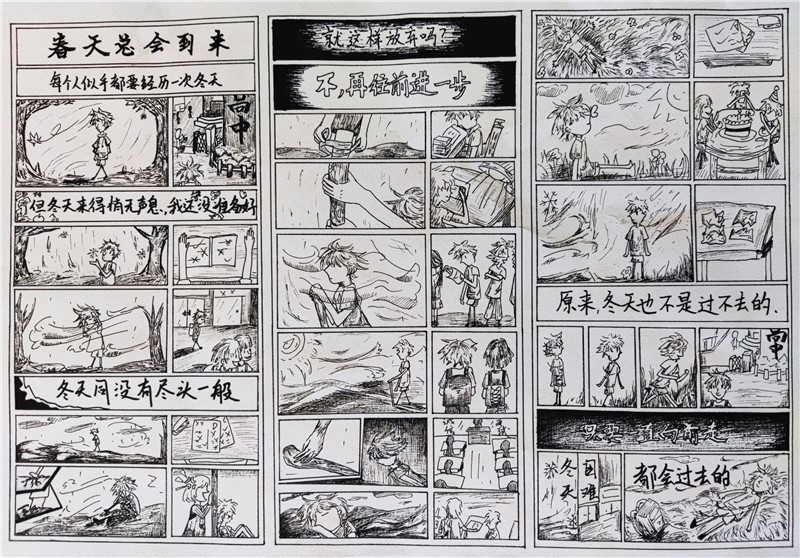 春天总会到来
每个人似乎都要经历一次冬天
尚中
但冬天来得悄无声息,我还没准备好
冬天同没有尽头一般
就这样放弃吗?
不,再往前进一步
原来,冬天也不是过不去的.
尚中
只要一直向前走
冬天
困难
都会过去的